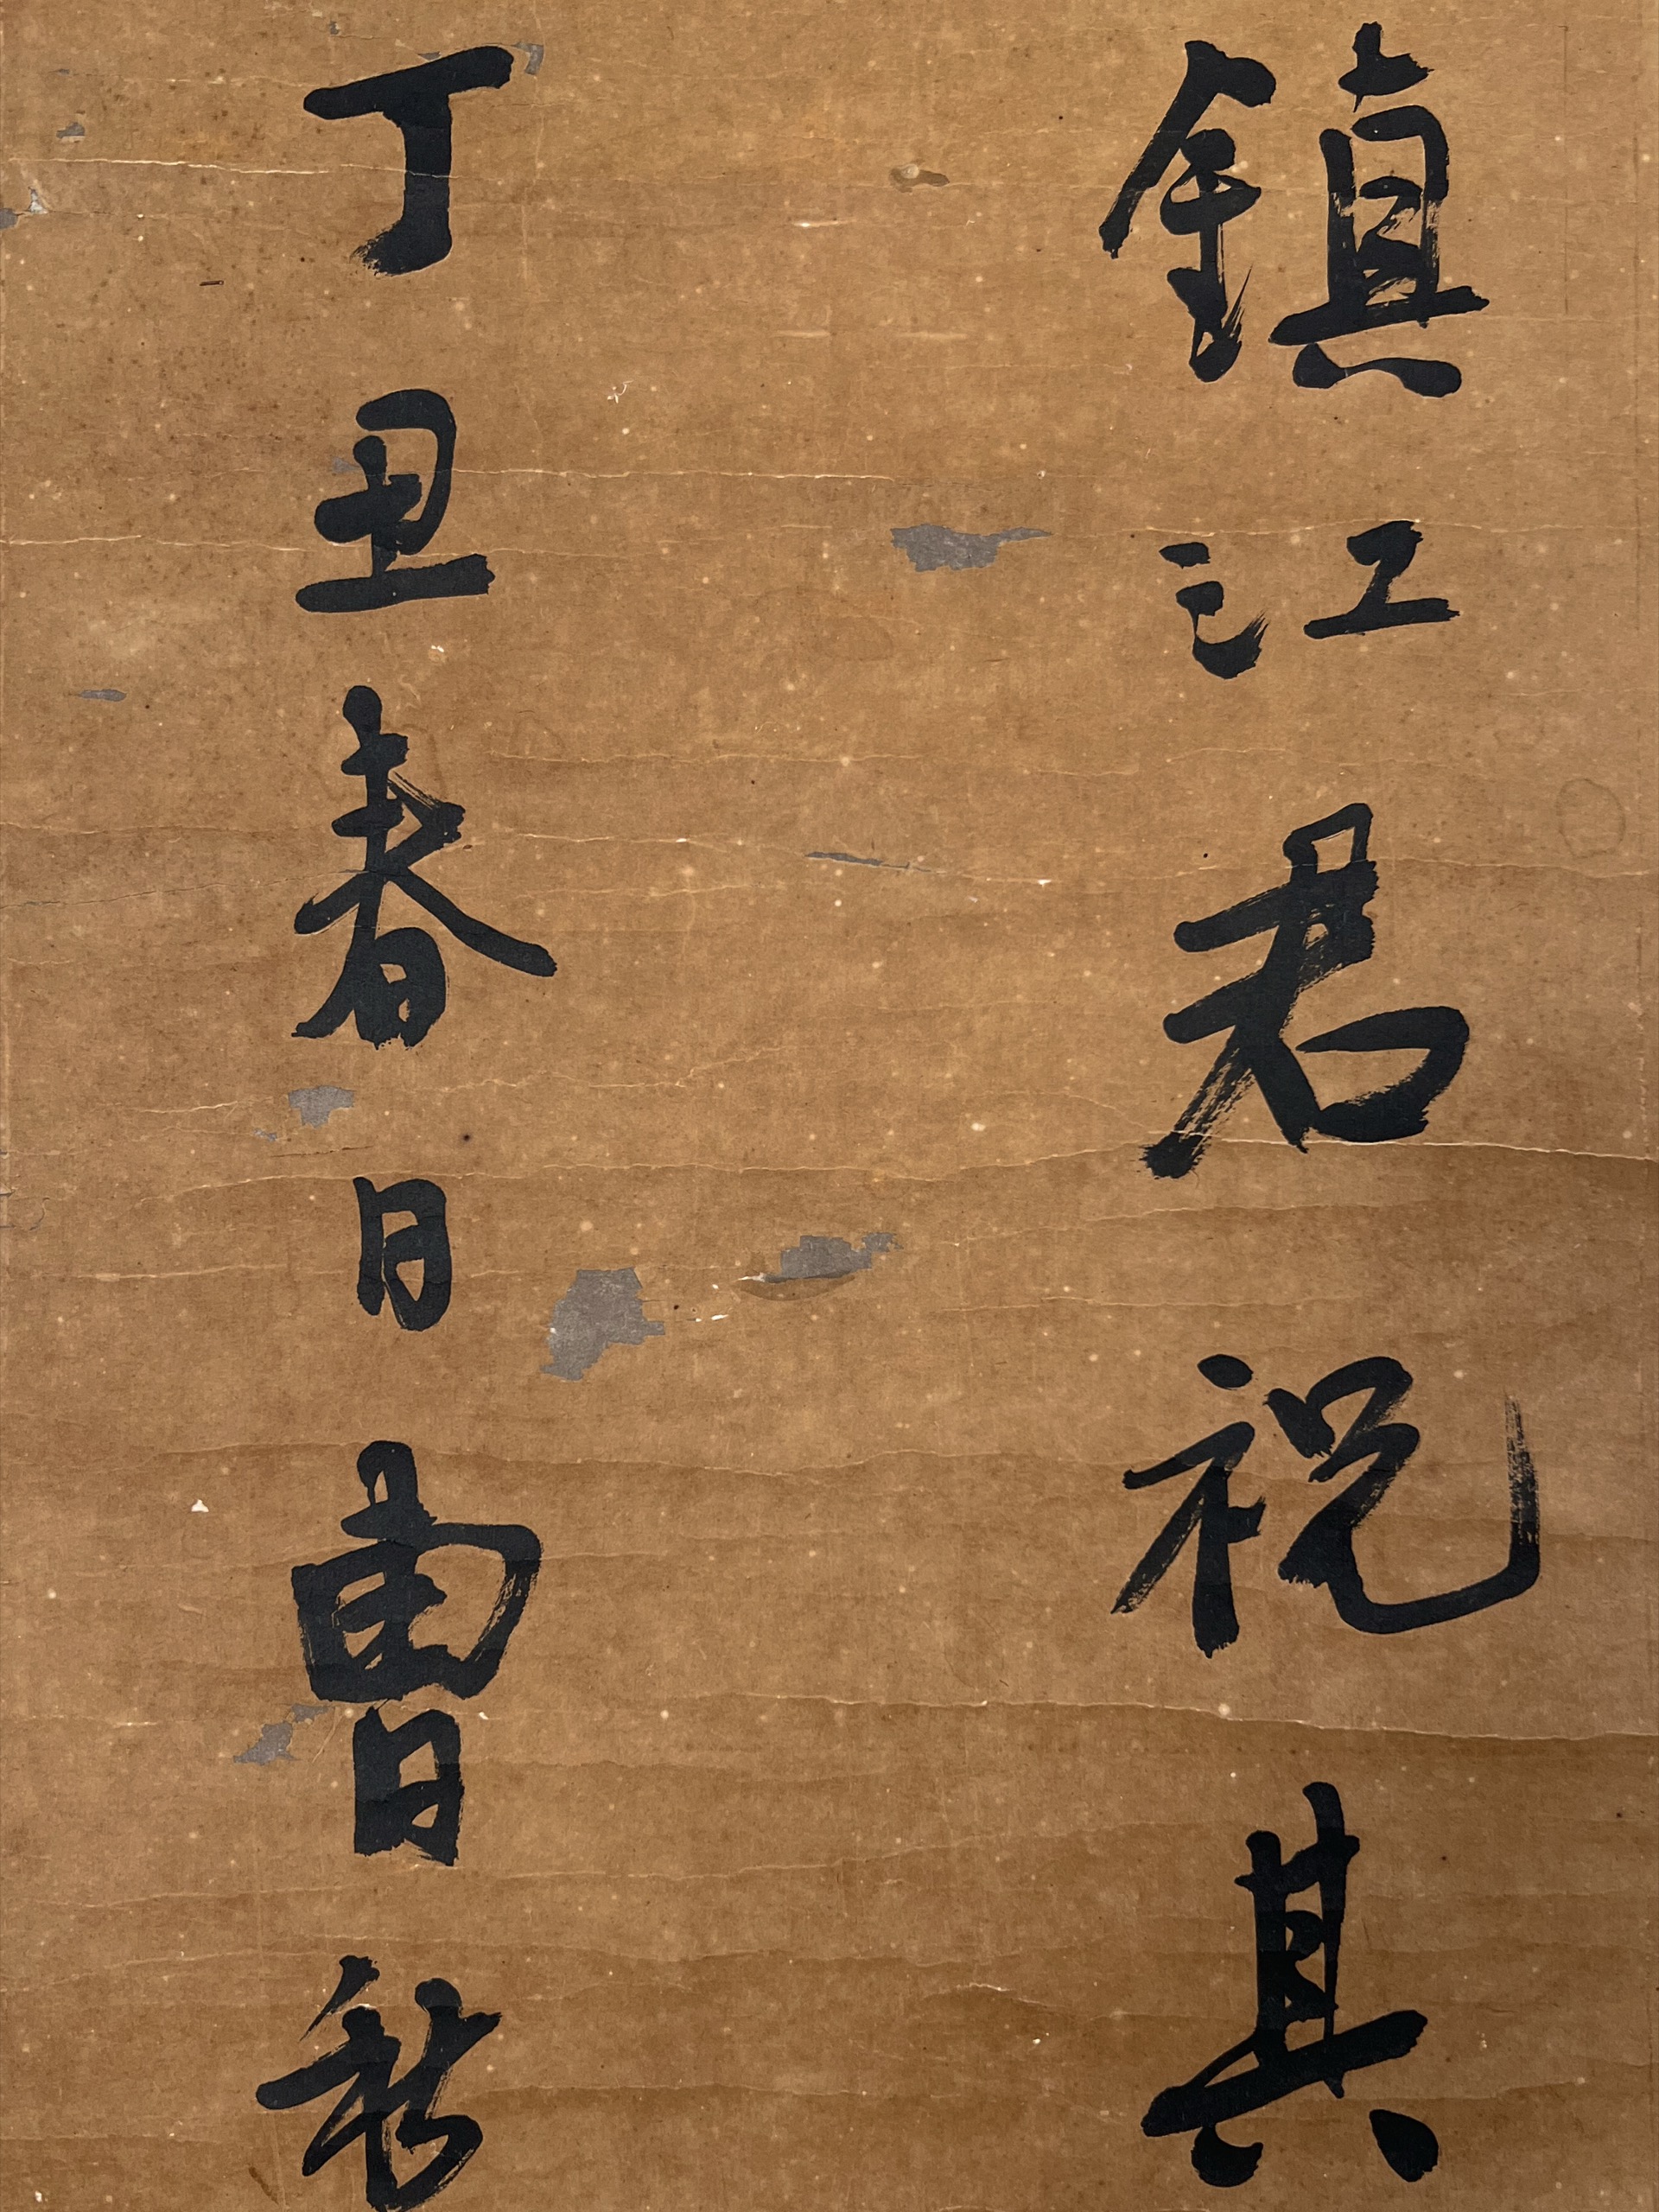 鎮江君祝其
丁丑春日曹秋